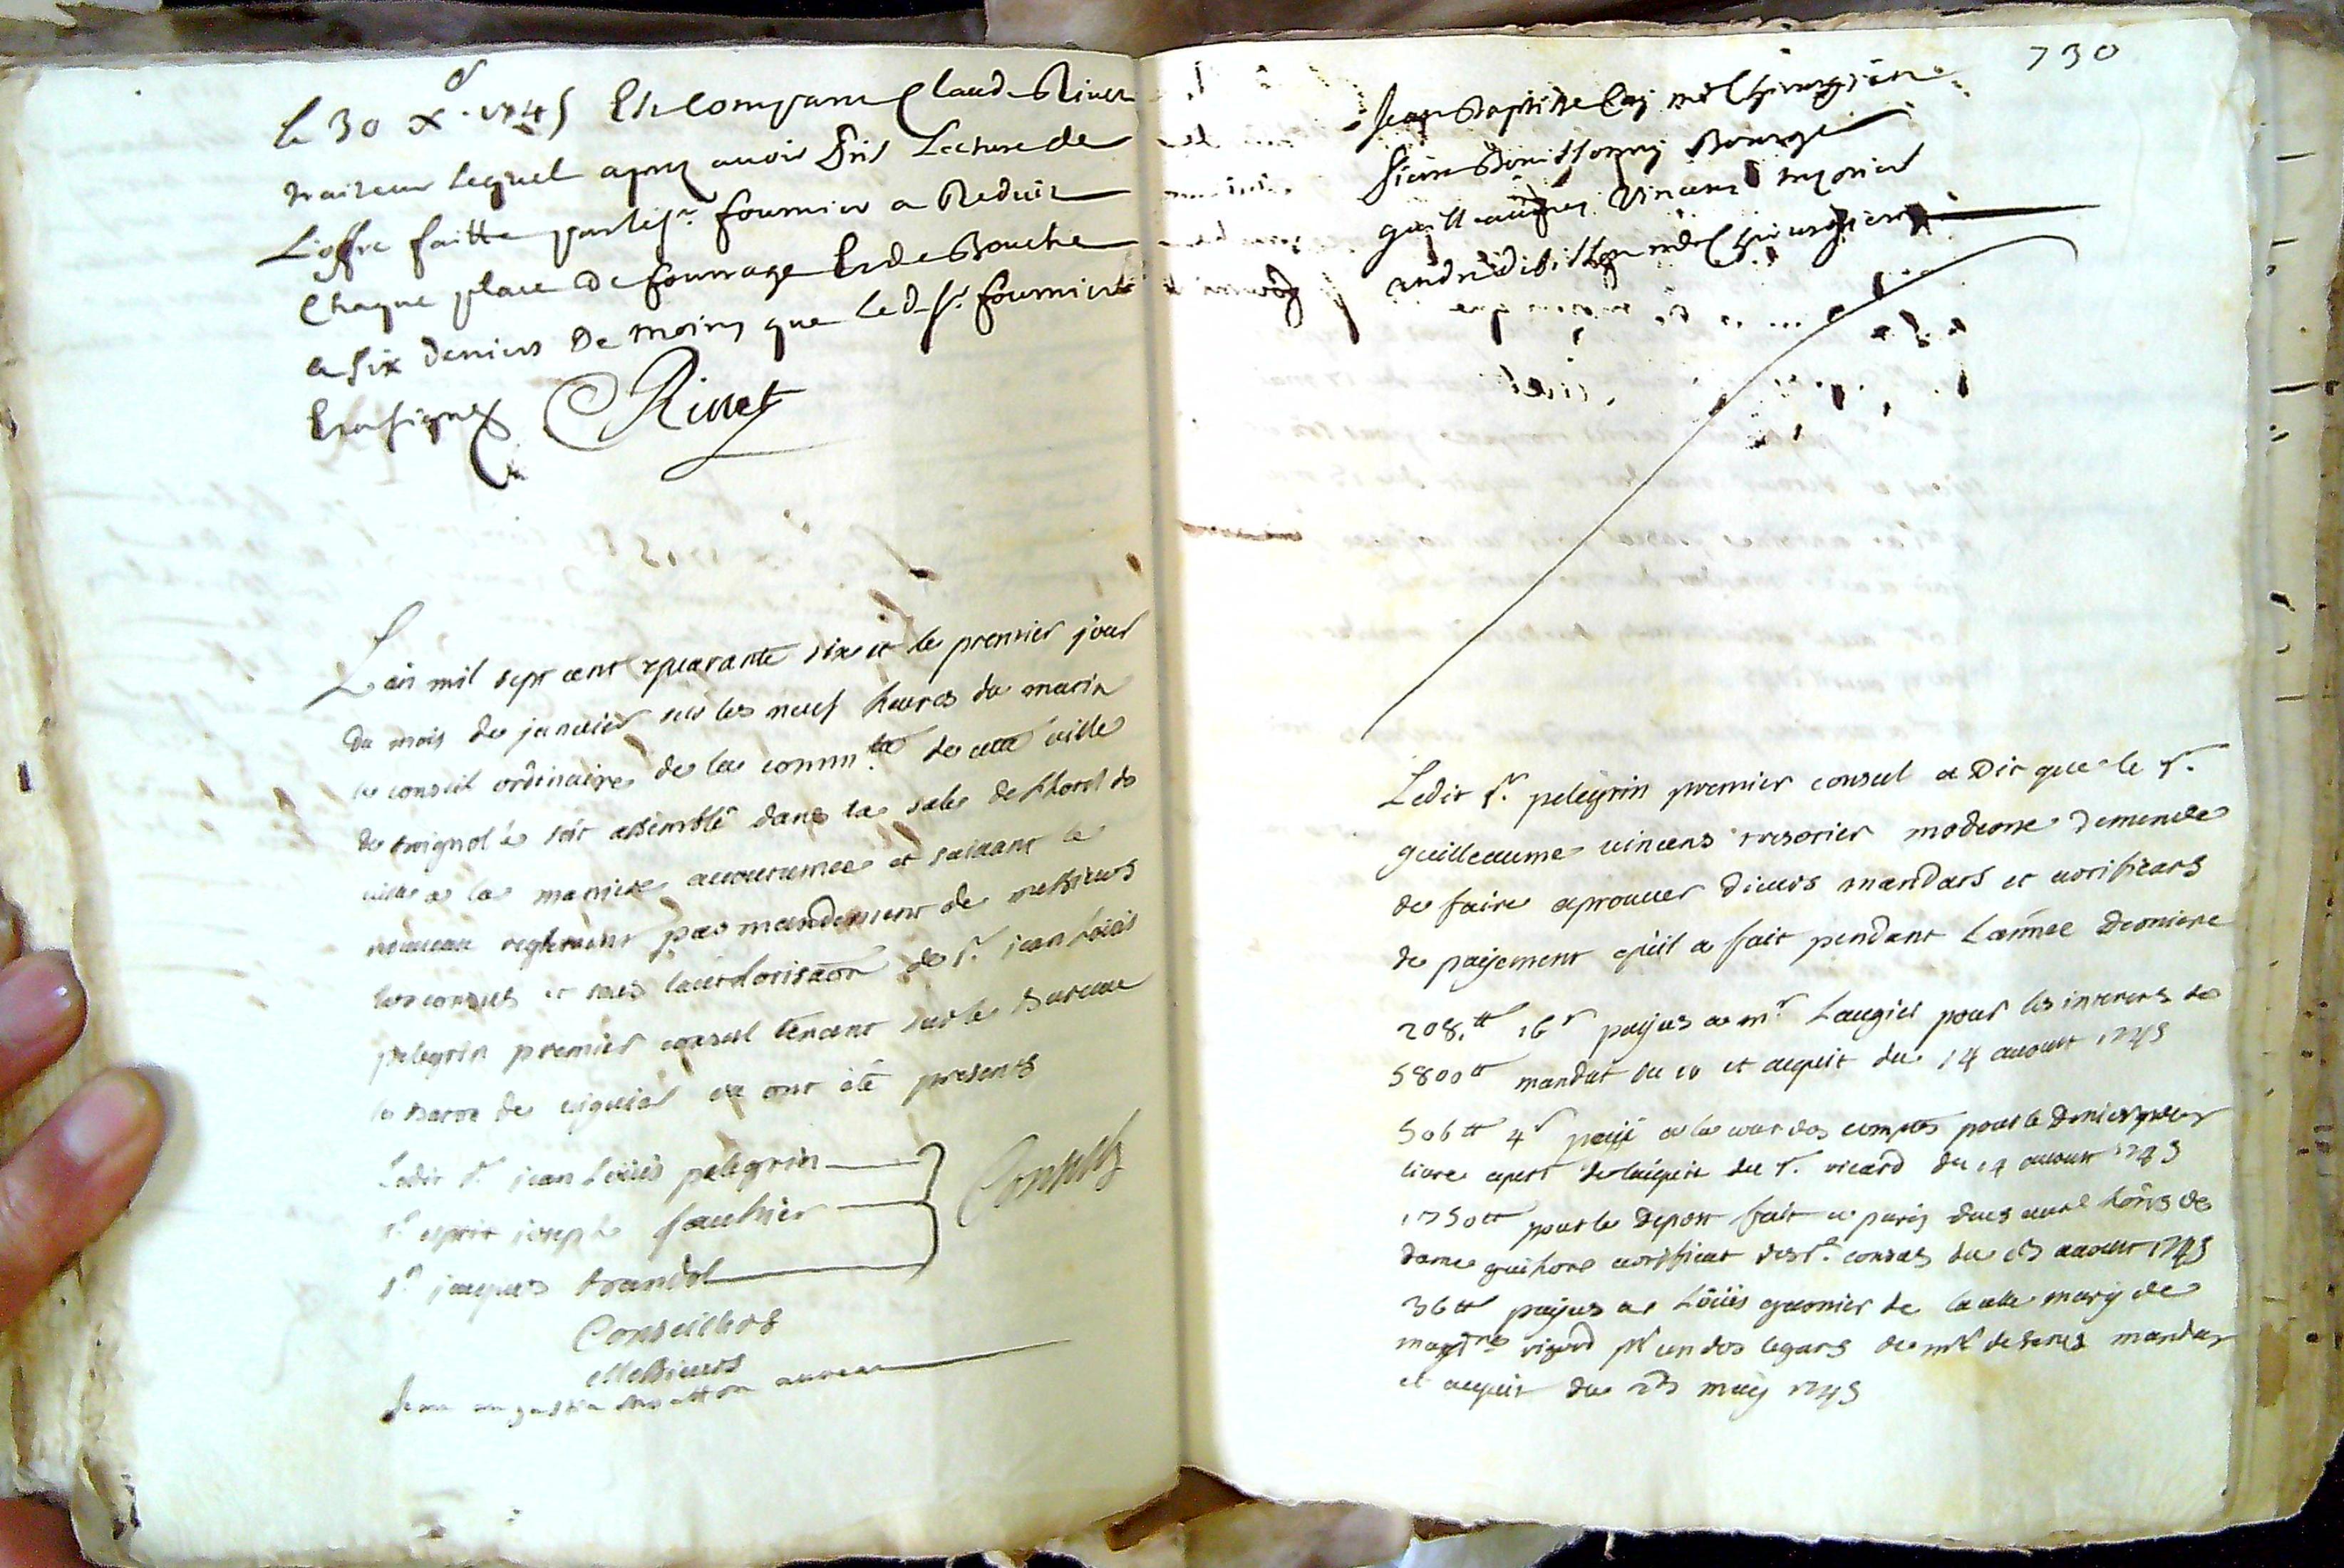 le 30 xbr 1745 Est Comparu Claude Rivet
traiteur lequel apres auoir Pris Lecture de
L'offre faitte par le sr. fournier a Reduit
Chaque place de fourrage Et de Bouche
a six deniers de moins que led. sr. fournier
Et a signé CRivet
L'an mil sept cent quarante six et le premier jour
du mois de januier sur les neuf heures du matin
le conseil ordinaire de la commté de cette ville
de brignole s'est assemblé dans la sale de lhotel de
ville a la maniere accoutumee et suiuant le
nouueau reglement par mandement de messieurs
les consuls et sous l'authorisaon de sr. jean loüis
pelegrin premier consul tenant sur le bureau
le baton de viguier ou ont été presents
Ledit sr jean Loüis pelegrin
sr. esprit joseph fauchier
sr. jacques brandol
Consuls
Conseillers
Messieurs
730
Jean Baptiste me Chirurgien
Bourgeois
Vincens tresorier
andré me Chirurgien
Ledit sr. pelegrin premier consul a Dit que le sr.
guilleaume vincens tresorier moderne demende
de faire aprouuer diuers mandats et certificats
de payement qu'il a fait pendant L'année derniere
208.tt 16s payés a mr. Laugier pour les interets de
5800tt mandat du 10 et acquit du 14 aoust 1745
506tt 4s payé a la cour des comptes pour le denier pour
livre apert de l'aquit du sr. ricard du 14 aoust 1745
1750tt pour le depost fait a paris dues aux hoirs de
dame certificat des srs. consuls du aoust 1745
36tt payés a Loüis garnier de la celle mary de
magdne rigord pr un des legats de mr de mandat
et acquit du may 1745